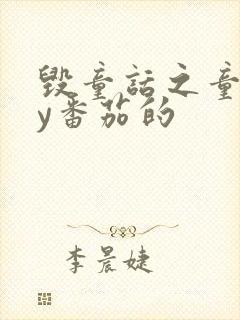 毁童话之童
y番茄的
李晨婕